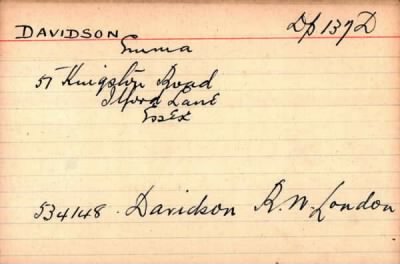 DAVIDSON Dp 137D
Emma
57 Kingston Road
Ilford Lane
Essex
534148. Davidson R.W. London